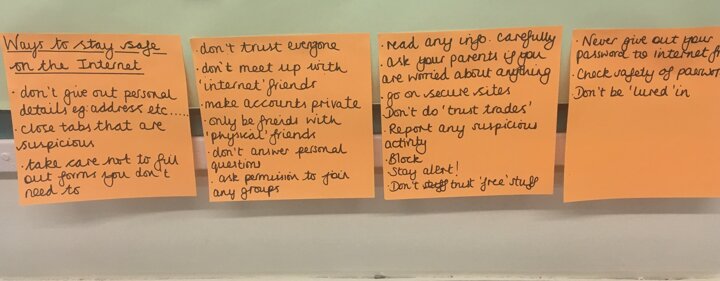 Ways to stay safe
on the Internet
· don't give out personal
details eg: address etc.....
· close tabs that are
suspicious
· take care not to fill
out forms you don't
need to
· don't trust everyone
· don't meet up with
'internet' friends
· make accounts private
· only be freids with
'physical' friends
· don't answer personal
questions
· ask permission to join
any groups
· read any info. carefully
· ask your parents if you
are worried about anything
· go on secure sites
Don't do 'trust trades'
· Report any suspicious
activity
· Block
· Stay alert!
· Don't trust 'free' stuff
· Never give out your
password to internet
· Check safety of
Don't be 'lured' in